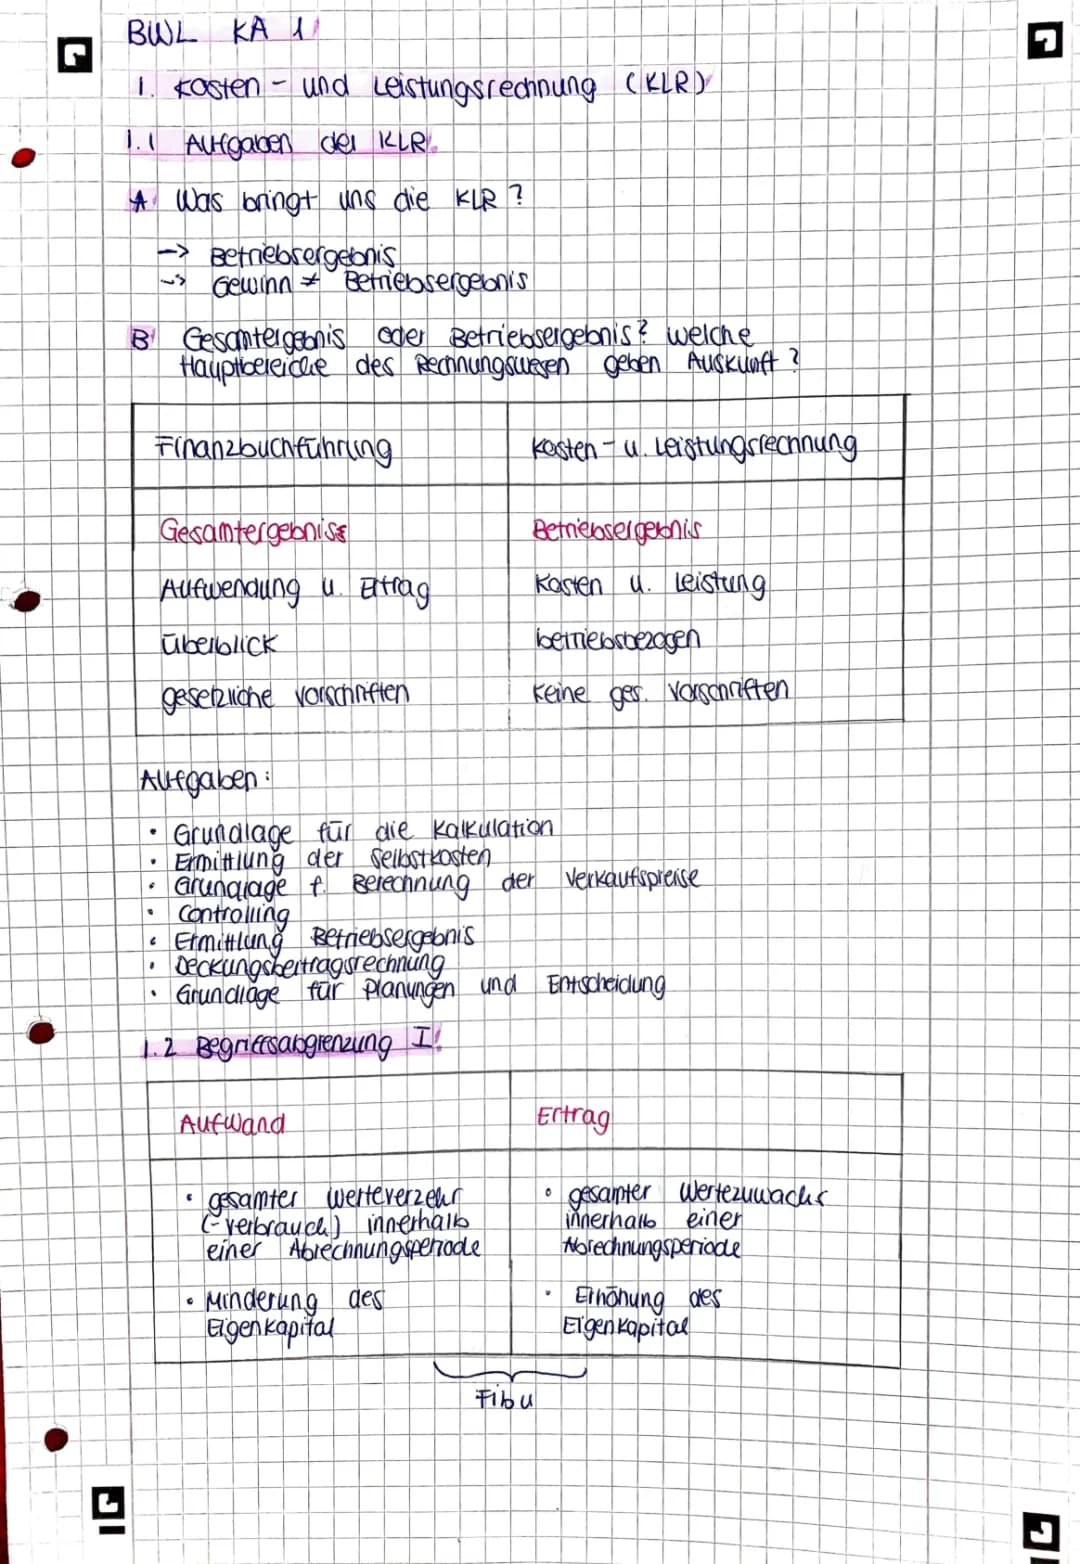 BWL KA 1
1. Kosten - und Leistungsrechnung (KLR)
1.1 Aufgaben der KLR
A Was bringt uns die KLR?
-> Betriebsergebnis
-> Gewinn ≠ Betriebsergebnis
B Gesamtergebnis oder Betriebsergebnis? welche
Hauptbereiche des Rechnungswesen geben Auskunft?
Finanzbuchführung
Kosten - u. Leistungsrechnung
Gesamtergebniss
Betriebsergebnis
Aufwendung u. Ertrag
Kosten u. Leistung
Überblick
betriebsbezogen
gesetzliche Vorschriften
keine ges. Vorschriften
Aufgaben:
• Grundlage für die Kalkulation
• Ermittlung der Selbstkosten
• Grundlage f. Berechnung der Verkaufspreise
• Controlling
• Ermittlung Betriebsergebnis
• Deckungsbeitragsrechnung
• Grundlage für Planungen und Entscheidung
1.2 Begriffsabgrenzung I
Aufwand
Ertrag
• gesamter Werteverzehr
(-verbrauch) innerhalb
einer Abrechnungsperiode
• Minderung des
Eigenkapital
• gesamter Wertezuwachs
innerhalb einer
Abrechnungsperiode
• Erhöhung des
Eigenkapital
Fibu